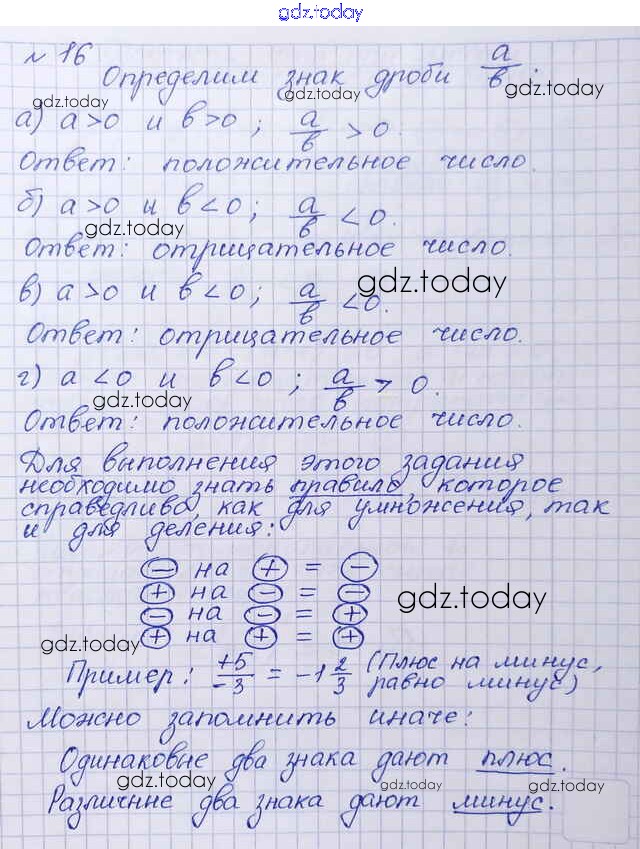 gdz.today
№ 16
Определим знак дроби a/b.
gdz.today gdz.today
а) a>0 и b>0; a/b >0.
gdz.today
Ответ: положительное число.
б) a>0 и b<0; a/b <0.
gdz.today
Ответ: отрицательное число.
в) a>0 и b<0; a/b <0.
gdz.today
Ответ: отрицательное число.
г) a<0 и b<0; a/b > 0.
gdz.today
Ответ: положительное число.
Для выполнения этого задания
необходимо знать правило, которое
справедливо, как для умножения, так
и для деления:
− на + = −
+ на − = −
gdz.today
− на − = +
+ на + = +
gdz.today
Пример: +5/−3 = −1 2/3 (Плюс на минус,
равно минус)
Можно запомнить иначе:
Одинаковые два знака дают плюс.
gdz.today gdz.today
Различные два знака дают минус.